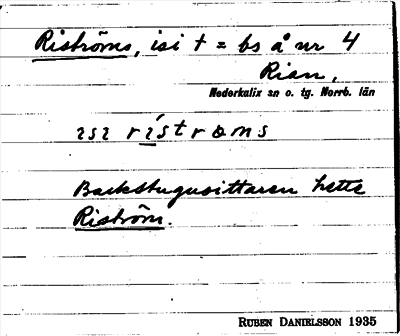 Riströms, isi t = bs å nr 4
Rian,
Nederkalix sn o. tg. Norrb. län
ɪsɪ rɪ́strøms
Backstugusittaren hette
Riström.
RUBEN DANIELSSON 1935